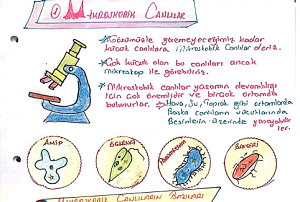 1 MİKROSKOBİK CANLILAR
* Gözümüzle göremeyeceğimiz kadar
küçük canlılara Mikroskobik Canlılar deriz.
* Çok küçük olan bu canlıları ancak
mikroskop ile görebiliriz.
* Mikroskobik canlılar yaşamın devamlılığı
için çok önemlidir ve birçok ortamda
bulunurlar. → Hava, Su, Toprak gibi ortamlarda
Başka canlıların vücutlarında
Besinlerin üzerinde yaşayabilir
ler.
AMİP
ÖGLENA
PARAMESYUM
BAKTERİ
MİKROSKOBİK CANLILARIN BAZILARI